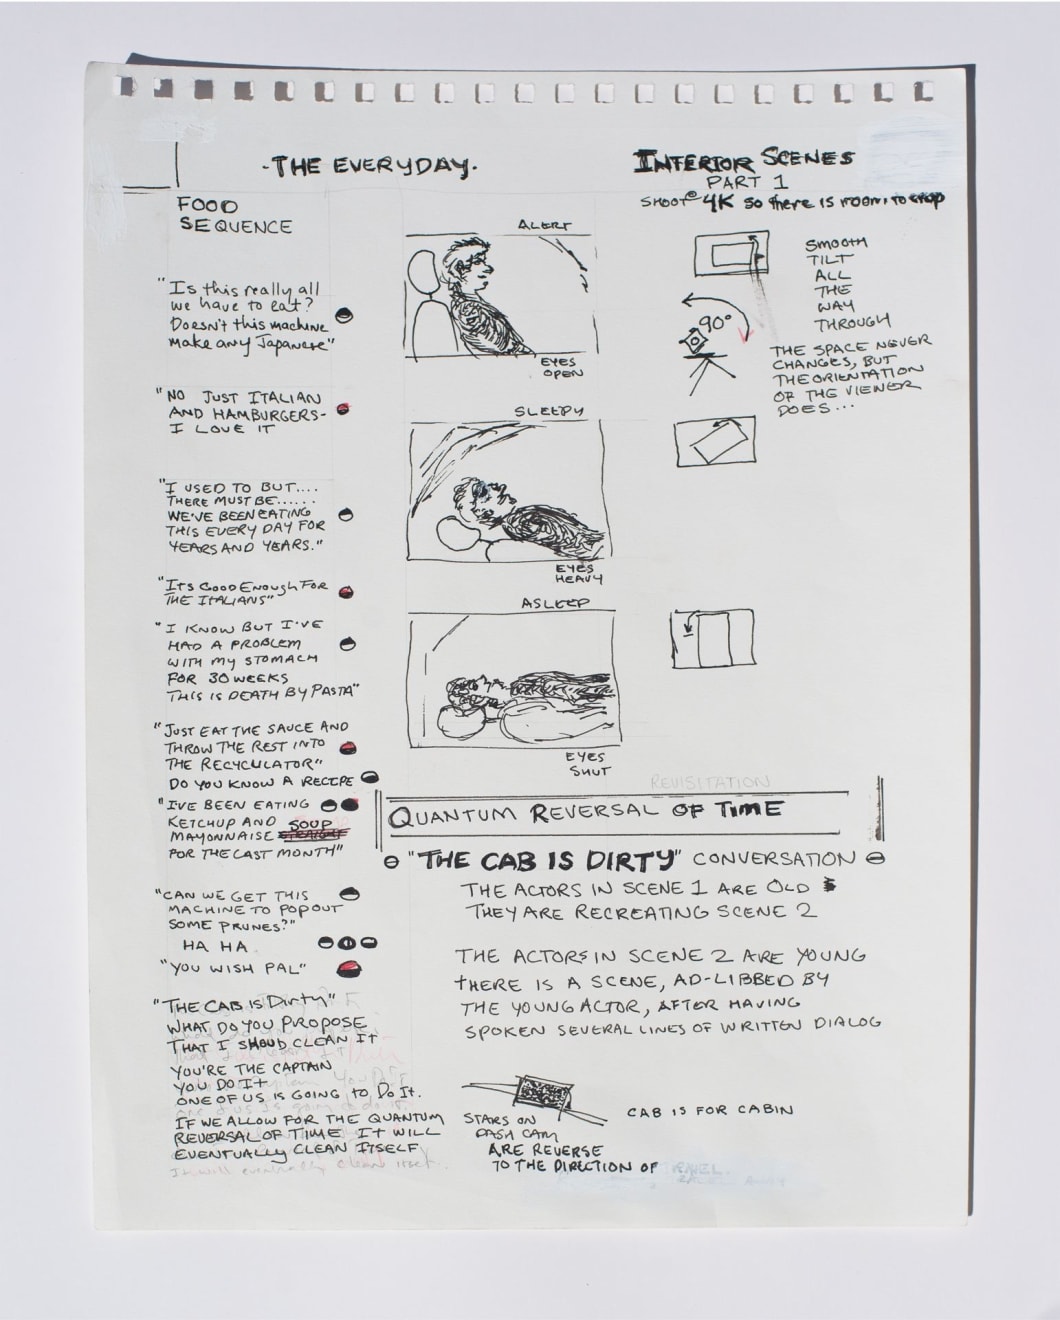 -THE EVERYDAY.
FOOD
SEQUENCE
"Is this really all
we have to eat?
Doesn't this machine
make any Japanese"
"NO JUST ITALIAN
AND HAMBURGERS-
I LOVE IT
"I USED TO BUT....
THERE MUST BE......
WE'VE BEEN EATING
THIS EVERY DAY FOR
YEARS AND YEARS."
"ITS GOOD ENOUGH FOR
THE ITALIANS"
"I KNOW BUT I'VE
HAD A PROBLEM
WITH MY STOMACH
FOR 30 WEEKS
THIS IS DEATH BY PASTA"
"JUST EAT THE SAUCE AND
THROW THE REST INTO
THE RECYCULATOR"
DO YOU KNOW A RECIPE
"I'VE BEEN EATING
KETCHUP AND SOUP
MAYONNAISE STRAIGHT
FOR THE LAST MONTH"
"CAN WE GET THIS
MACHINE TO POP OUT
SOME PRUNES?"
HA HA
"YOU WISH PAL"
"THE CAB IS DIRTY"
WHAT DO YOU PROPOSE
THAT I SHOUD CLEAN IT
YOU'RE THE CAPTAIN
YOU DO IT
ONE OF US IS GOING TO DO IT.
IF WE ALLOW FOR THE QUANTUM
REVERSAL OF TIME IT WILL
EVENTUALLY CLEAN ITSELF
It will eventually clean itself.
ALERT
EYES
OPEN
SLEEPY
EYES
HEAVY
ASLEEP
EYES
SHUT
INTERIOR SCENES
PART 1
SHOOT @ 4K so there is room to crop
SMOOTH
TILT
ALL
THE
WAY
THROUGH
90°
THE SPACE NEVER
CHANGES, BUT
THE ORIENTATION
OF THE VIEWER
DOES...
REVISITATION
QUANTUM REVERSAL OF TIME
"THE CAB IS DIRTY" CONVERSATION
THE ACTORS IN SCENE 1 ARE OLD
THEY ARE RECREATING SCENE 2
THE ACTORS IN SCENE 2 ARE YOUNG
THERE IS A SCENE, AD-LIBBED BY
THE YOUNG ACTOR, AFTER HAVING
SPOKEN SEVERAL LINES OF WRITTEN DIALOG
STARS ON
DASH CAM
ARE REVERSE
TO THE DIRECTION OF
CAB IS FOR CABIN